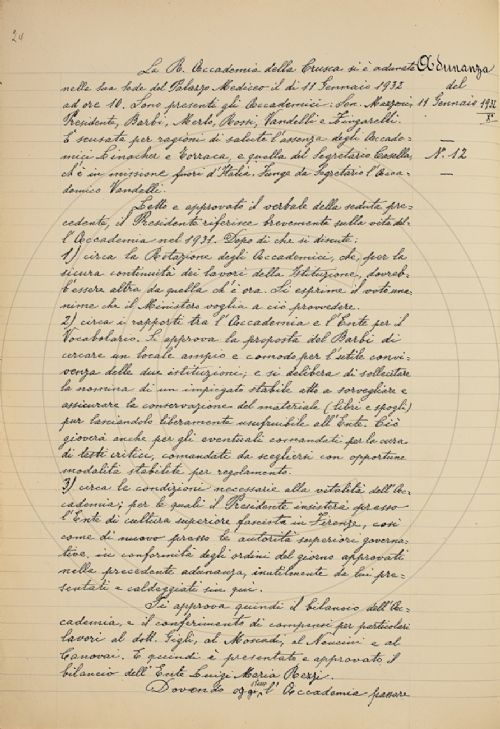 24
La R. Accademia della Crusca si è adunata
nella sua sede del Palazzo Mediceo il dì 11 Gennaio 1932
ad ore 10. Sono presenti gli Accademici: Sen. Mazzoni,
Presidente, Barbi, Merlo, Rossi, Vandelli e Zingarelli.
È scusata per ragioni di salute l'assenza degli Accade=
mici Linaiher e Torraca, e quella del Segretario Casella,
ch'è in missione fuori d'Italia. Funge da Segretario l'Acca=
demico Vandelli.
Letto e approvato il verbale della seduta pre=
cedente, il Presidente riferisce brevemente sulla vita del=
l'Accademia nel 1931. Dopo di che si discute:
1) circa la Rotazione degli Accademici, che, per la
sicura continuità dei lavori della Istituzione, dovreb=
b'essere altra da quella ch'è ora. Si esprime il voto una=
nime che il Ministero voglia a ciò provvedere.
2) circa i rapporti tra l'Accademia e l'Ente per il
Vocabolario. Si approva la proposta del Barbi di
cercare un locale ampio e comodo per l'utile convi=
venza delle due istituzioni; e si delibera di sollecitare
la nomina di un impiegato stabile atto a sorvegliare e
assicurare la conservazione del materiale (libri e spogli)
pur lasciandolo liberamente usufruibile all'Ente. Ciò
gioverà anche per gli eventuali comandati per la cura
di testi critici, comandati da scegliersi con opportune
modalità stabilite per regolamento.
3) circa le condizioni necessarie alla vitalità dell'Ac=
cademia; per le quali il Presidente insisterà presso
l'Ente di cultura superiore fascista in Firenze, così
come di nuovo presso le autorità superiori governa=
tive, in conformità degli ordini del giorno approvati
nella precedente adunanza, inutilmente da lui pre=
sentati e caldeggiati sin qui.
Si approva quindi il bilancio dell'Ac=
cademia, e il conferimento di compensi per particolari
lavori al dott. Gigli, al Moscadi, al Nencini e al
Canovai. E quindi è presentato e approvato il
bilancio dell'Ente Luigi Maria Rezzi.
Dovendo oggi stesso l'Accademia passare
Adunanza
del
11 Gennaio 1932
X°
N. 12